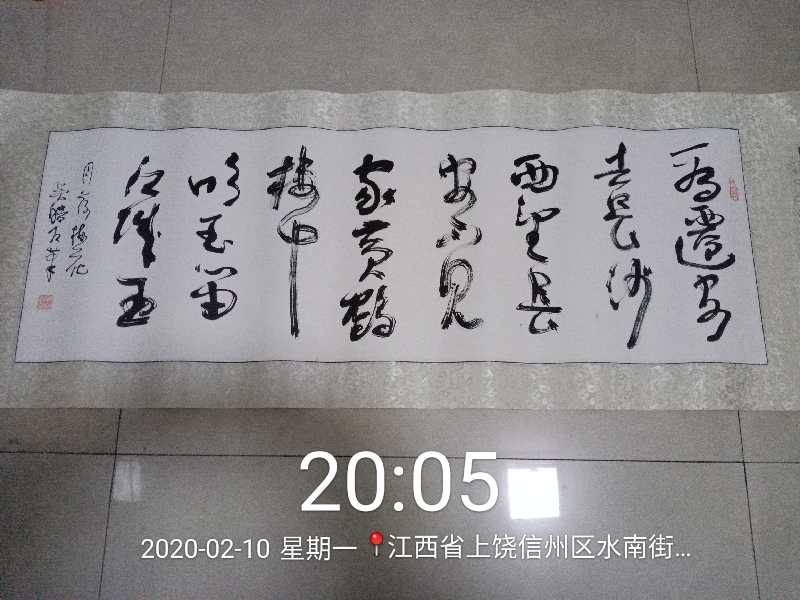 一为迁客
去长沙
西望长
安不见
家黄鹤
楼中
吹玉笛
江城五
月落梅花
20:05
2020-02-10 星期一 江西省上饶信州区水南街...